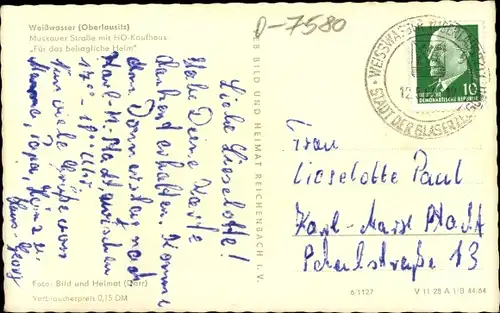 Weißwasser (Oberlausitz)
Muskauer Straße mit HO-Kaufhaus
„Für das behagliche Heim"
D-7580
Liebe Lieselotte!
Habe Deine Karte
dankend erhalten. Komme
am Donnerstag nach
Karl-M-Stadt zwischen
17°°-18°° Uhr
Nun viele Grüße von
Mama, Papa, Heinz u.
Hans-Georg
Foto: Bild und Heimat (Darr)
Verbraucherpreis 0,15 DM
VEB BILD UND HEIMAT REICHENBACH I. V.
WEISSWASSER
STADT DER GLASER
10
DEUTSCHE
DEMOKRATISCHE REPUBLIK
Frau
Lieselotte Paul
Karl-Marx Stadt
13
6/1127
V 11 28 A 1/B 44/64